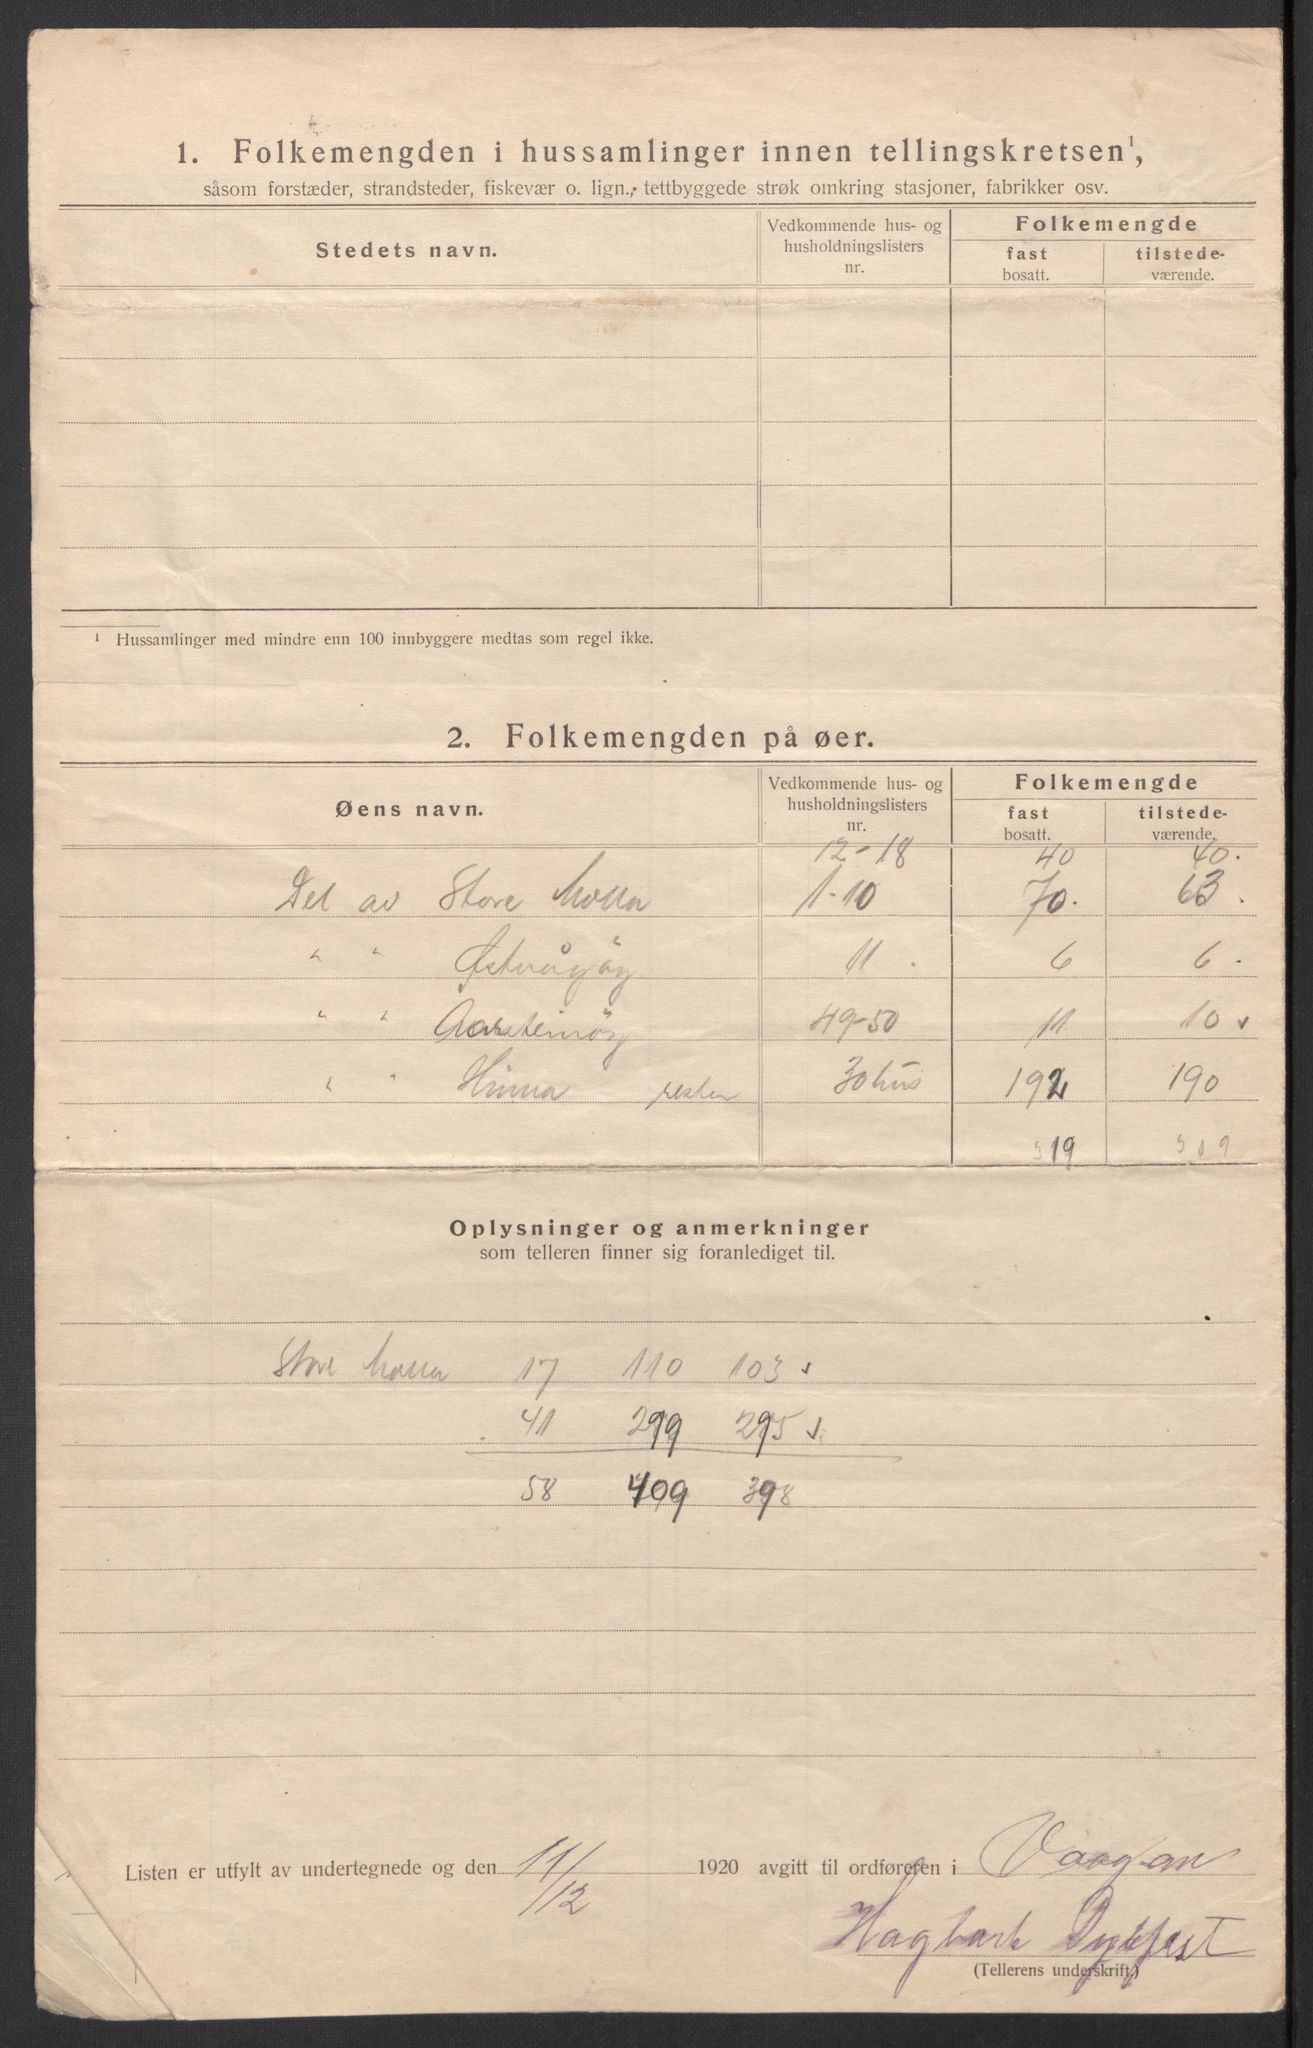 1. Folkemengden i hussamlinger innen tellingskretsen¹,
såsom forstæder, strandsteder, fiskevær o. lign., tettbyggede strøk omkring stasjoner, fabrikker osv.
Stedets navn.
Vedkommende hus- og husholdningslisters nr.
Folkemengde
fast bosatt.
tilstede-værende.
¹ Hussamlinger med mindre enn 100 innbyggere medtas som regel ikke.
2. Folkemengden på øer.
Øens navn.
Vedkommende hus- og husholdningslisters nr.
Folkemengde
fast bosatt.
tilstede-værende.
12-18 40 40.
Del av Store Molla 1-10 70. 63.
" " Østvågöy 11. 6 6.
" " Aarsteinöy 49-50 11 10 v
" " Hinna resten 30 hus 192 190
319 309
Oplysninger og anmerkninger
som telleren finner sig foranlediget til.
Store Molla 17 110 103 v
41 299 295 v
58 409 398
Listen er utfylt av undertegnede og den 11/12 1920 avgitt til ordføreren i Vaagan
Hagbart
(Tellerens underskrift.)